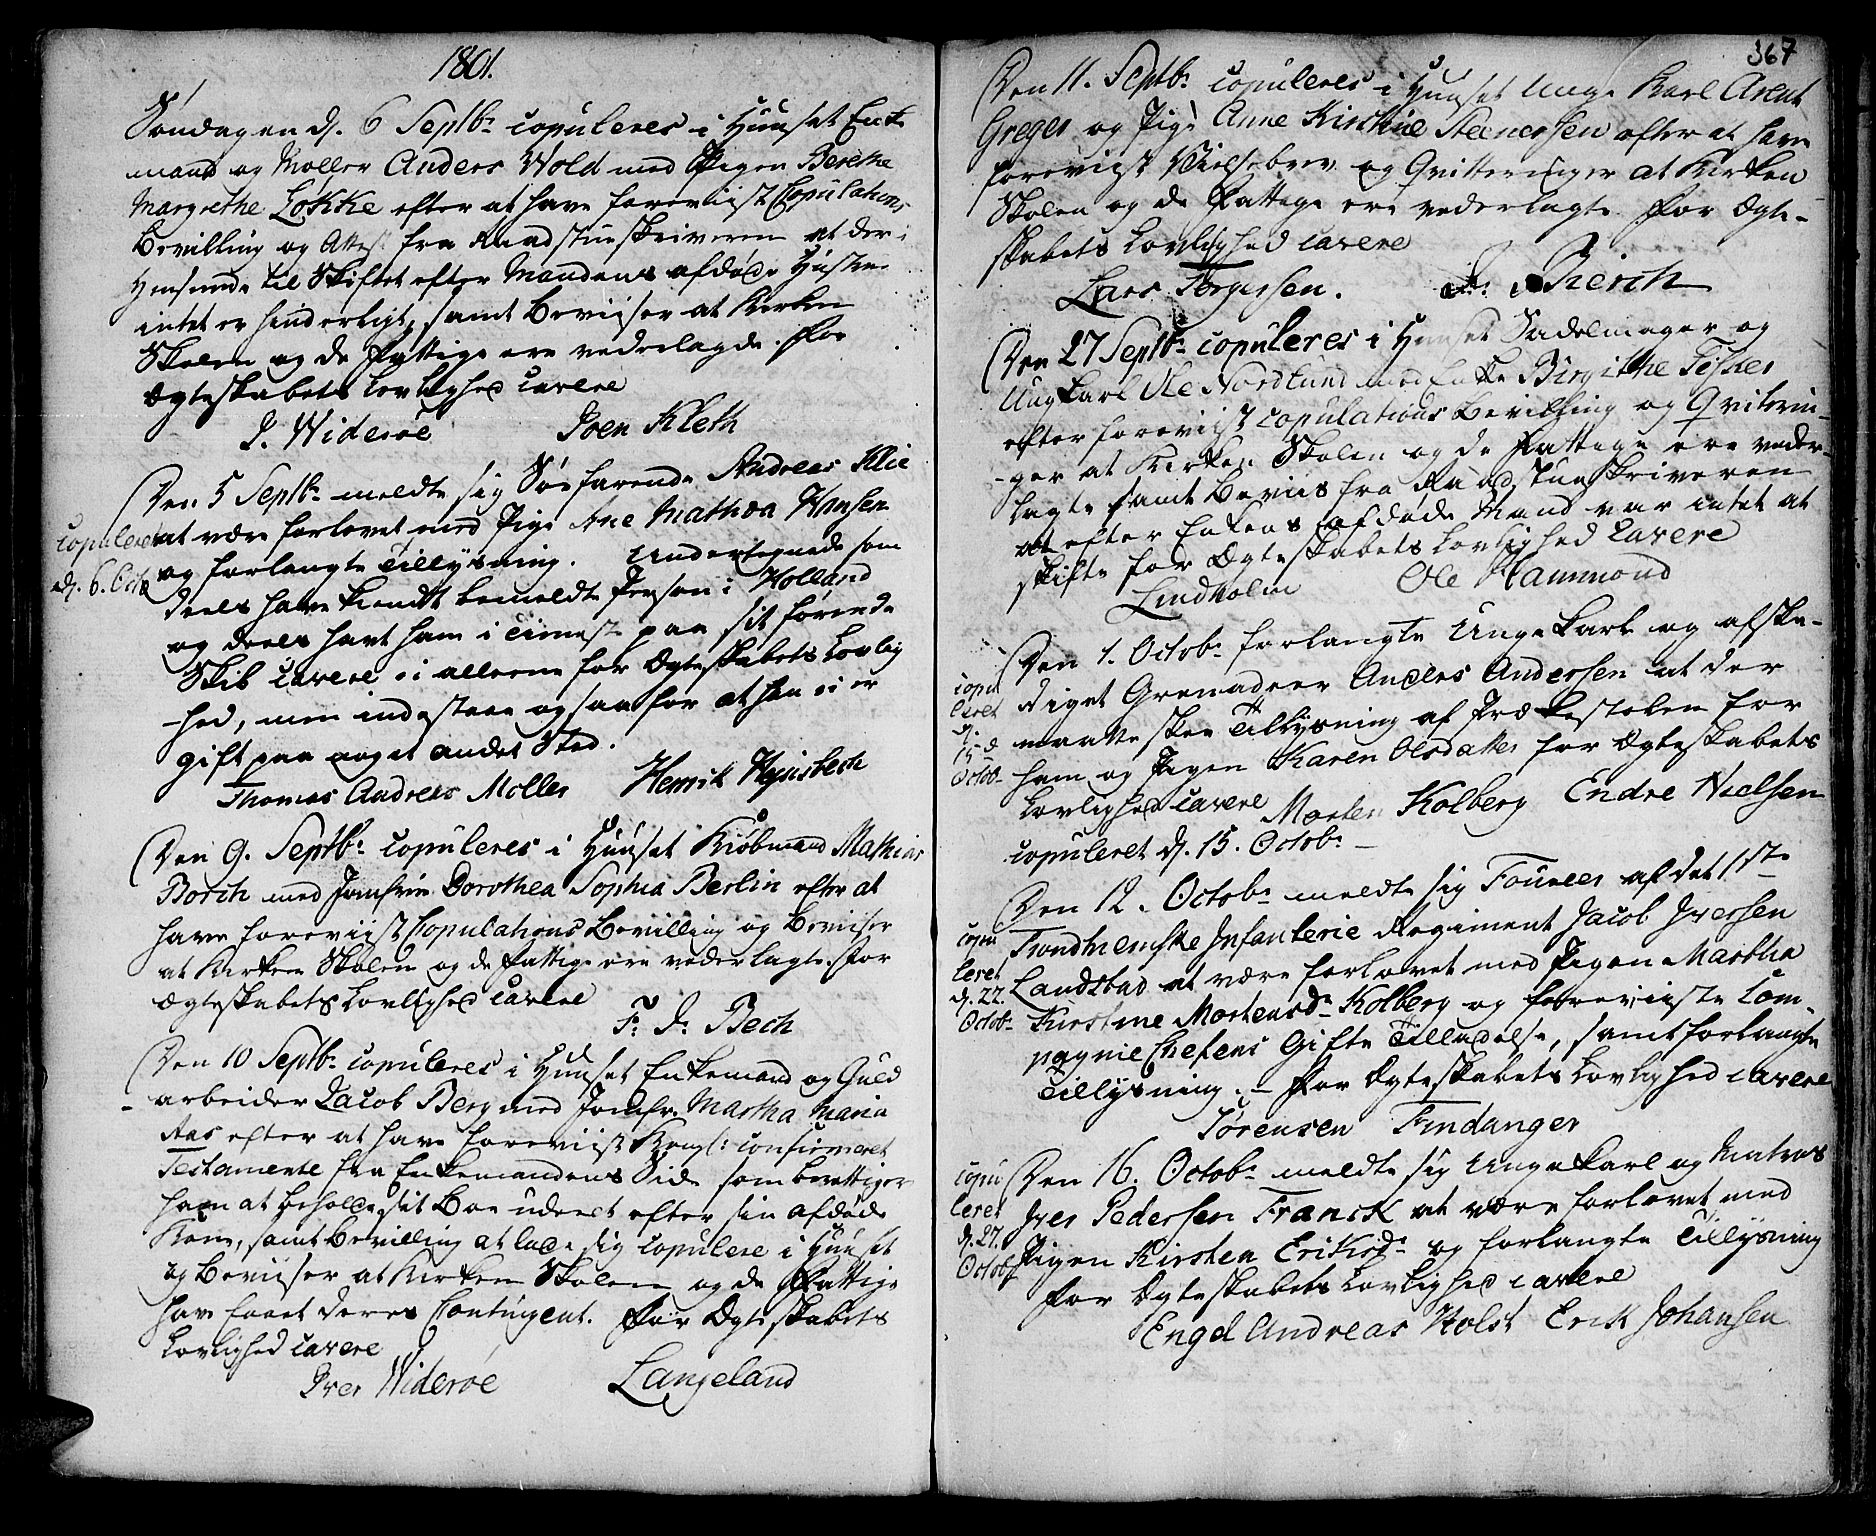 1801.
Søndagen d. 6 Septbr copuleres i Huuset Enke-
mand og Møller Anders Wold med Pigen Berethe
Margrethe Løkke efter at have foreviist Copulations
Bevilling og Attest fra Raadstueskriveren at der i
Henseende til Skiftet efter Mandens afdøde Hustru
intet er hinderligt, samt Beviiser at Kirken
Skolen og de Fattige ere vederlagde. For
Ægteskabets Lovlighed cavere
J. Widerøe Joen Kleth
Den 5 Septbr meldte sig Søefarende Andreas Klie
at være forlovet med Pige Ane Mathea Hansen
og forlangte Tillysning. Undertegnede som
deels have kiendt bemeldte Person i Holland
og deels havt ham i Tieneste paa sit førende
Skib cavere ei alleene for Ægteskabets Lovlig
-hed, men indestaae ogsaa for at han ei er
gift paa noget andet Sted.
Thomas Andreas Møller Henrik Hysisbech
copuleret
d. 6. Octb
Den 9. Septbr copuleres i Huuset Kiøbmand Mathias
Borch med Jomfrue Dorothea Sophia Berlin efter at
have foreviist Copulations Bevilling og Beviiser
at Kirken Skolen og de Fattige ere vederlagte. For
Ægteskabets Lovlighed cavere
F. D. Bech
Den 10 Septbr copuleres i Huuset Enkemand og Guld
arbeider Jacob Berg med Jomfr. Martha Maria
Aas efter at have foreviist Kongl: confirmeret
Testamente fra Enkemandens Side som berettiger
ham at beholde sit Boe udeelt efter sin afdøde
Kone, samt Bevilling at lade sig copulere i Huuset
og Beviiser at Kirken Skolen og de Fattige
har faaet deres Contingent. For Ægteskabets
Lovlighed cavere
Iver Widerøe Langeland
367
Den 11. Septbr copuleres i Huuset Unge Karl Arent
Greger og Pige Anne Kirstine Steenersen efter at have
foreviist Vielsebrev og Qvitteringer at Kirken
Skolen og de Fattige ere vederlagte. For Ægte-
skabets Lovlighed cavere
Lars Torgersen.
Den 27 Septbr copuleres i Huuset Sadelmager og
Ung Karl Ole Nordlund med Enke Birgithe Fisher
efter foreviist Copulations Bevilling og Qviterin-
-ger at Kirken Skolen og de Fattige ere veder-
lagte samt Beviis fra Raadstueskriveren
at efter Enkens afdøde Mand var intet at
skifte for Ægteskabets Lovlighed cavere
Lindholm Ole Hammond
Den 1. Octobr forlangte Unge Karl og afske-
diget Grenadeer Anders Andersen at der
maatte skee Tillysning af Prædikestolen for
ham og Pigen Karen Olsdatter for Ægteskabets
Lovlighed cavere Morten Kolberg Endre Nielsen
copuleret d. 15. Octobr
copu
leret
d.
15 d
Octob
Den 12. Octobr meldte sig Foureer af det 1ste
Trondhiemske Infanterie Regiment Jacob Iversen
Landstad at være forlovet med Pigen Martha
Kirstine Mortensdr Kolberg og foreviiste Com-
pagnie Chefens Gifte Tilladelse, samt forlangte
Tillysning. - For Ægteskabets Lovlighed cavere
Sørensen Findanger
copu
leret
d. 22.
Octobr
Den 16. Octobr meldte sig Unge Karl og Matros
Iver Pedersen Franck at være forlovet med
Pigen Kirsten Eriksdr og forlangte Tillysning
for Ægteskabets Lovlighed cavere
Engel Andreas Holst Erik Johansen
copu
leret
d. 27.
Octob